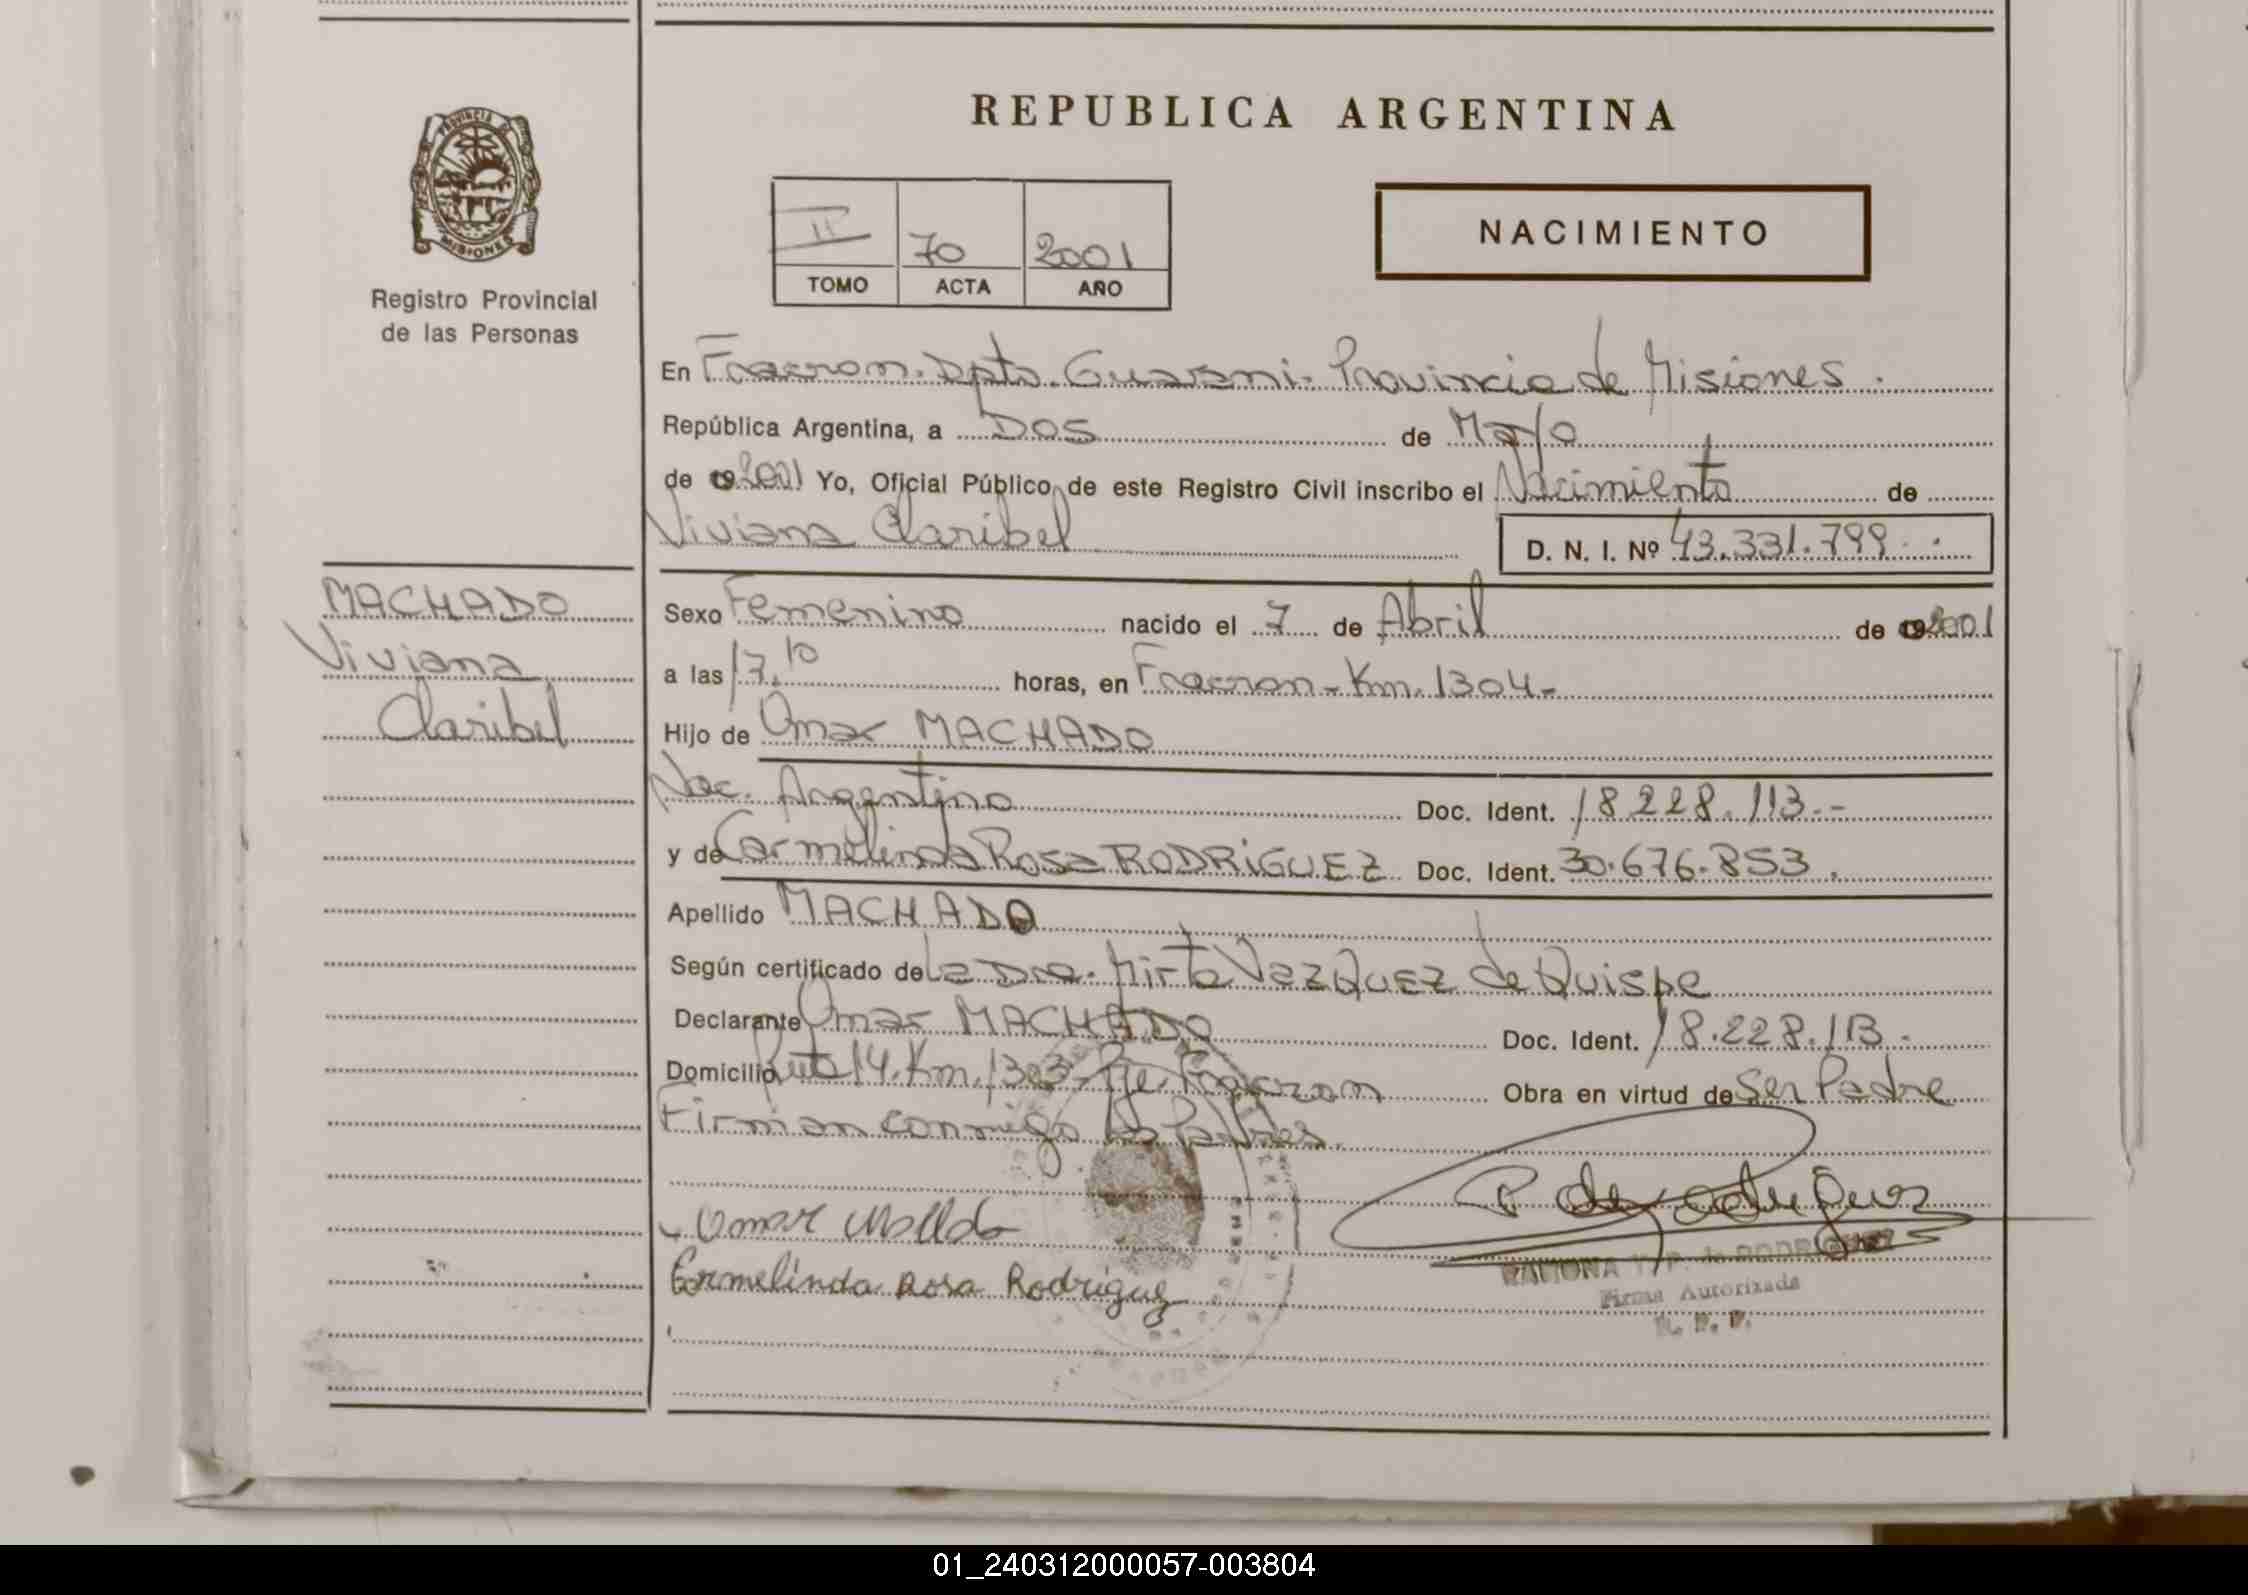 REPUBLICA ARGENTINA
PROVINCIA DE
MISIONES
Registro Provincial
de las Personas
II 70 2001
TOMO ACTA AÑO
NACIMIENTO
En Fracrom. Dpto. Guarani. Provincia de Misiones.
República Argentina, a Dos de Mayo
de 19 2001 Yo, Oficial Público de este Registro Civil inscribo el Nacimiento de
Viviana Claribel D. N. I. Nº 43.331.799
MACHADO
Viviana
Claribel
Sexo Femenino nacido el 7 de Abril de 19 2001
a las 17.10 horas, en Fracron - Km. 1304 -
Hijo de Omar MACHADO
Nac. Argentino Doc. Ident. 18228.113.-
y de Carmelinda Rosa RODRIGUEZ Doc. Ident. 30.676.853.
Apellido MACHADO
Según certificado de La Dra. Mirta VazQuez de Quispe
Declarante Omar MACHADO Doc. Ident. 18.228.113.
Domicilio Ruta 14. Km. 1303 Pje. Fracrom Obra en virtud de Ser Padre
Firman conmigo los Padres.
Omar
Carmelinda Rosa Rodriguez
RAMONA de RODRIGUEZ
Firma Autorizada
R. P. P.
01_240312000057-003804